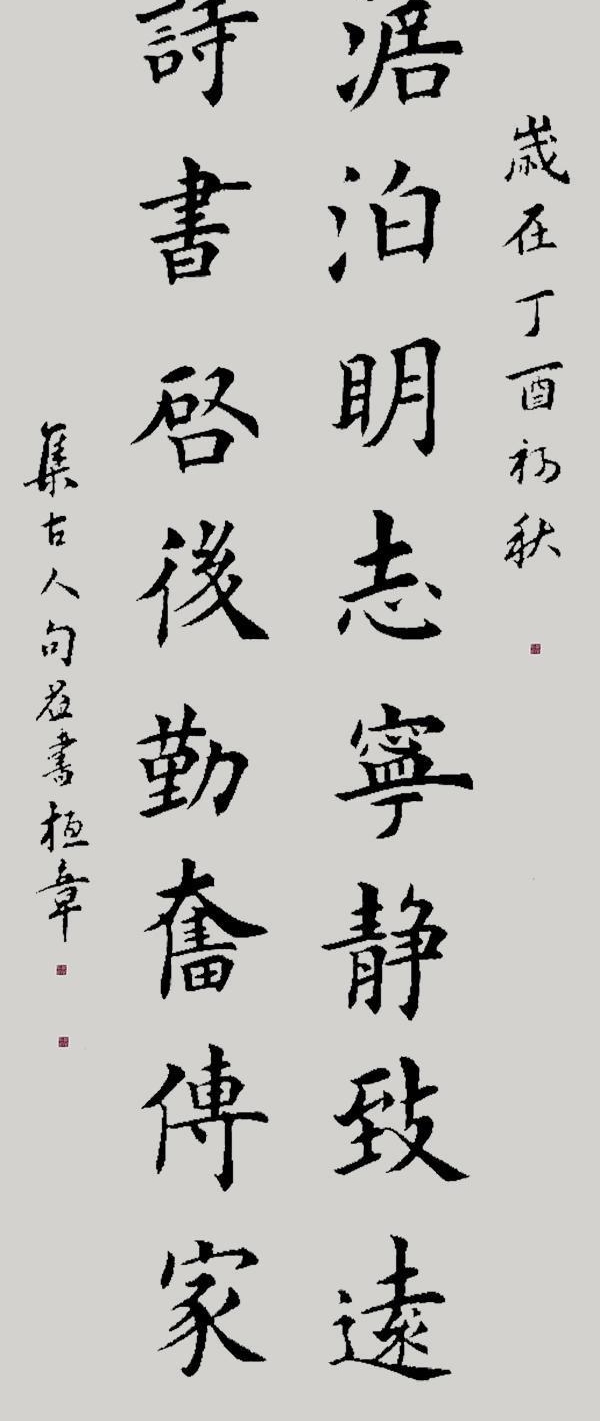 歲在丁酉初秋
澹泊明志寧静致遠
詩書啓後勤奮傳家
集古人句並書桓章